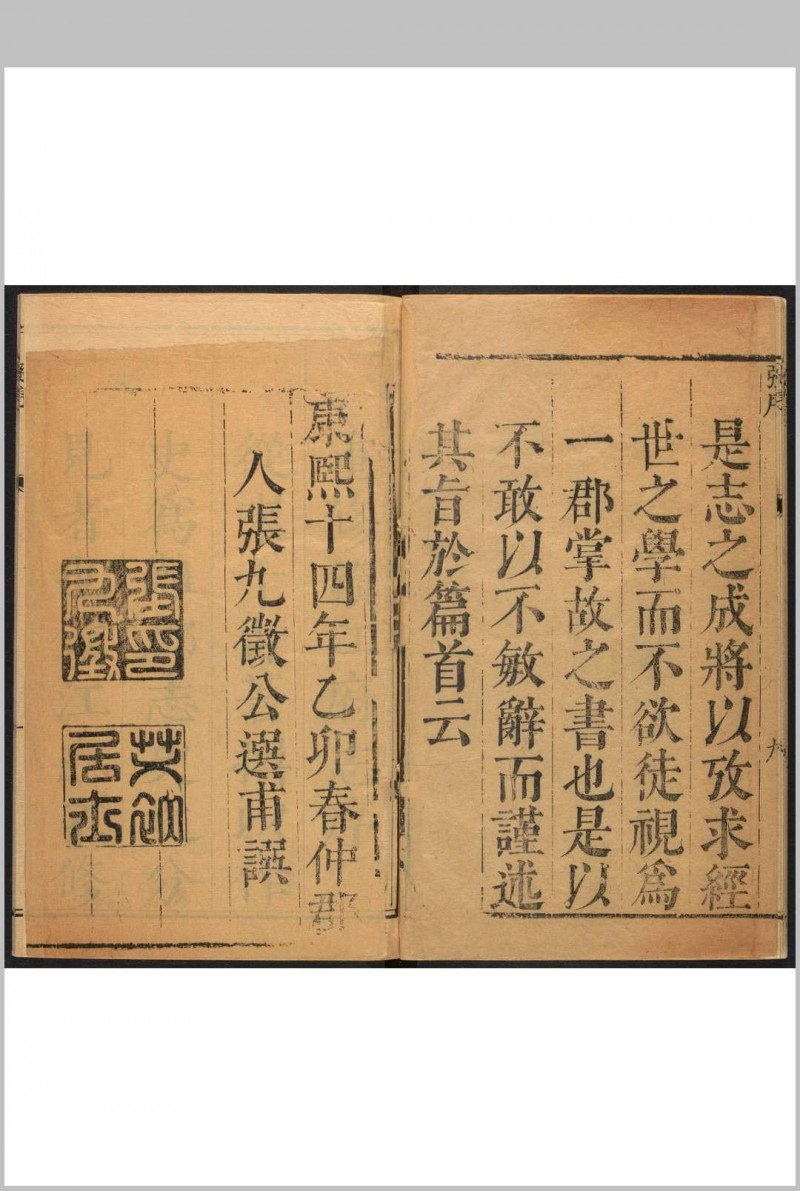 張序
是志之成將以攷求經
世之學而不欲徒視爲
一郡掌故之書也是以
不敢以不敏辭而謹述
其旨於篇首云
九
康熙十四年乙卯春仲郡
人張九徵公選甫譔
張印九徵
居士